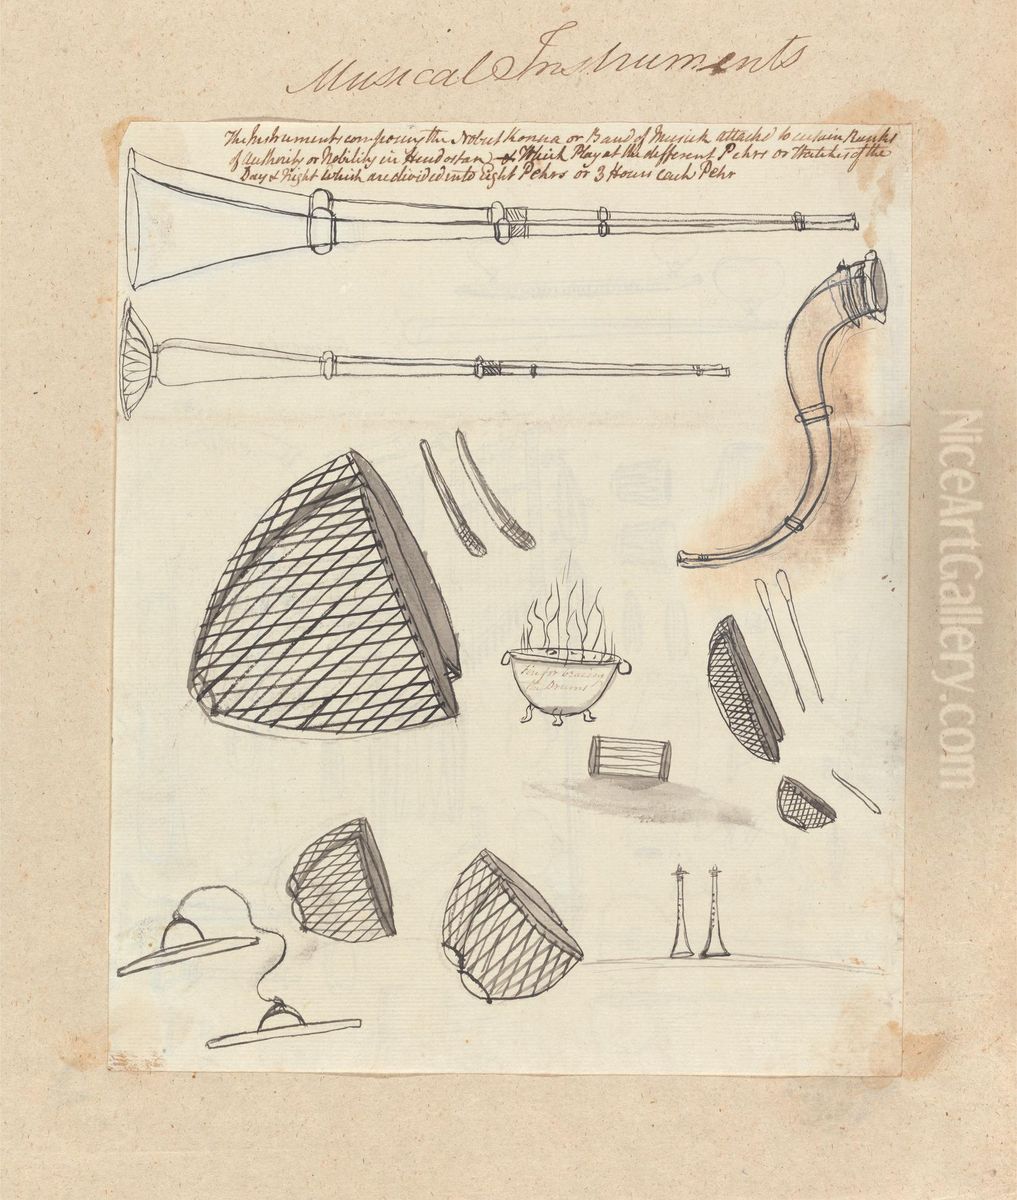 Musical Instruments
The Instruments composing the Nobut Konna or Band of Musick attached to certain Ranks
of Authority or Nobility in Hindostan & Which Play at the different Pehrs or Watches of the
Day & Night which are divided into Eight Pehrs or 3 Hours each Pehr
Fire for bracing
the Drums
NiceArtGallery.com